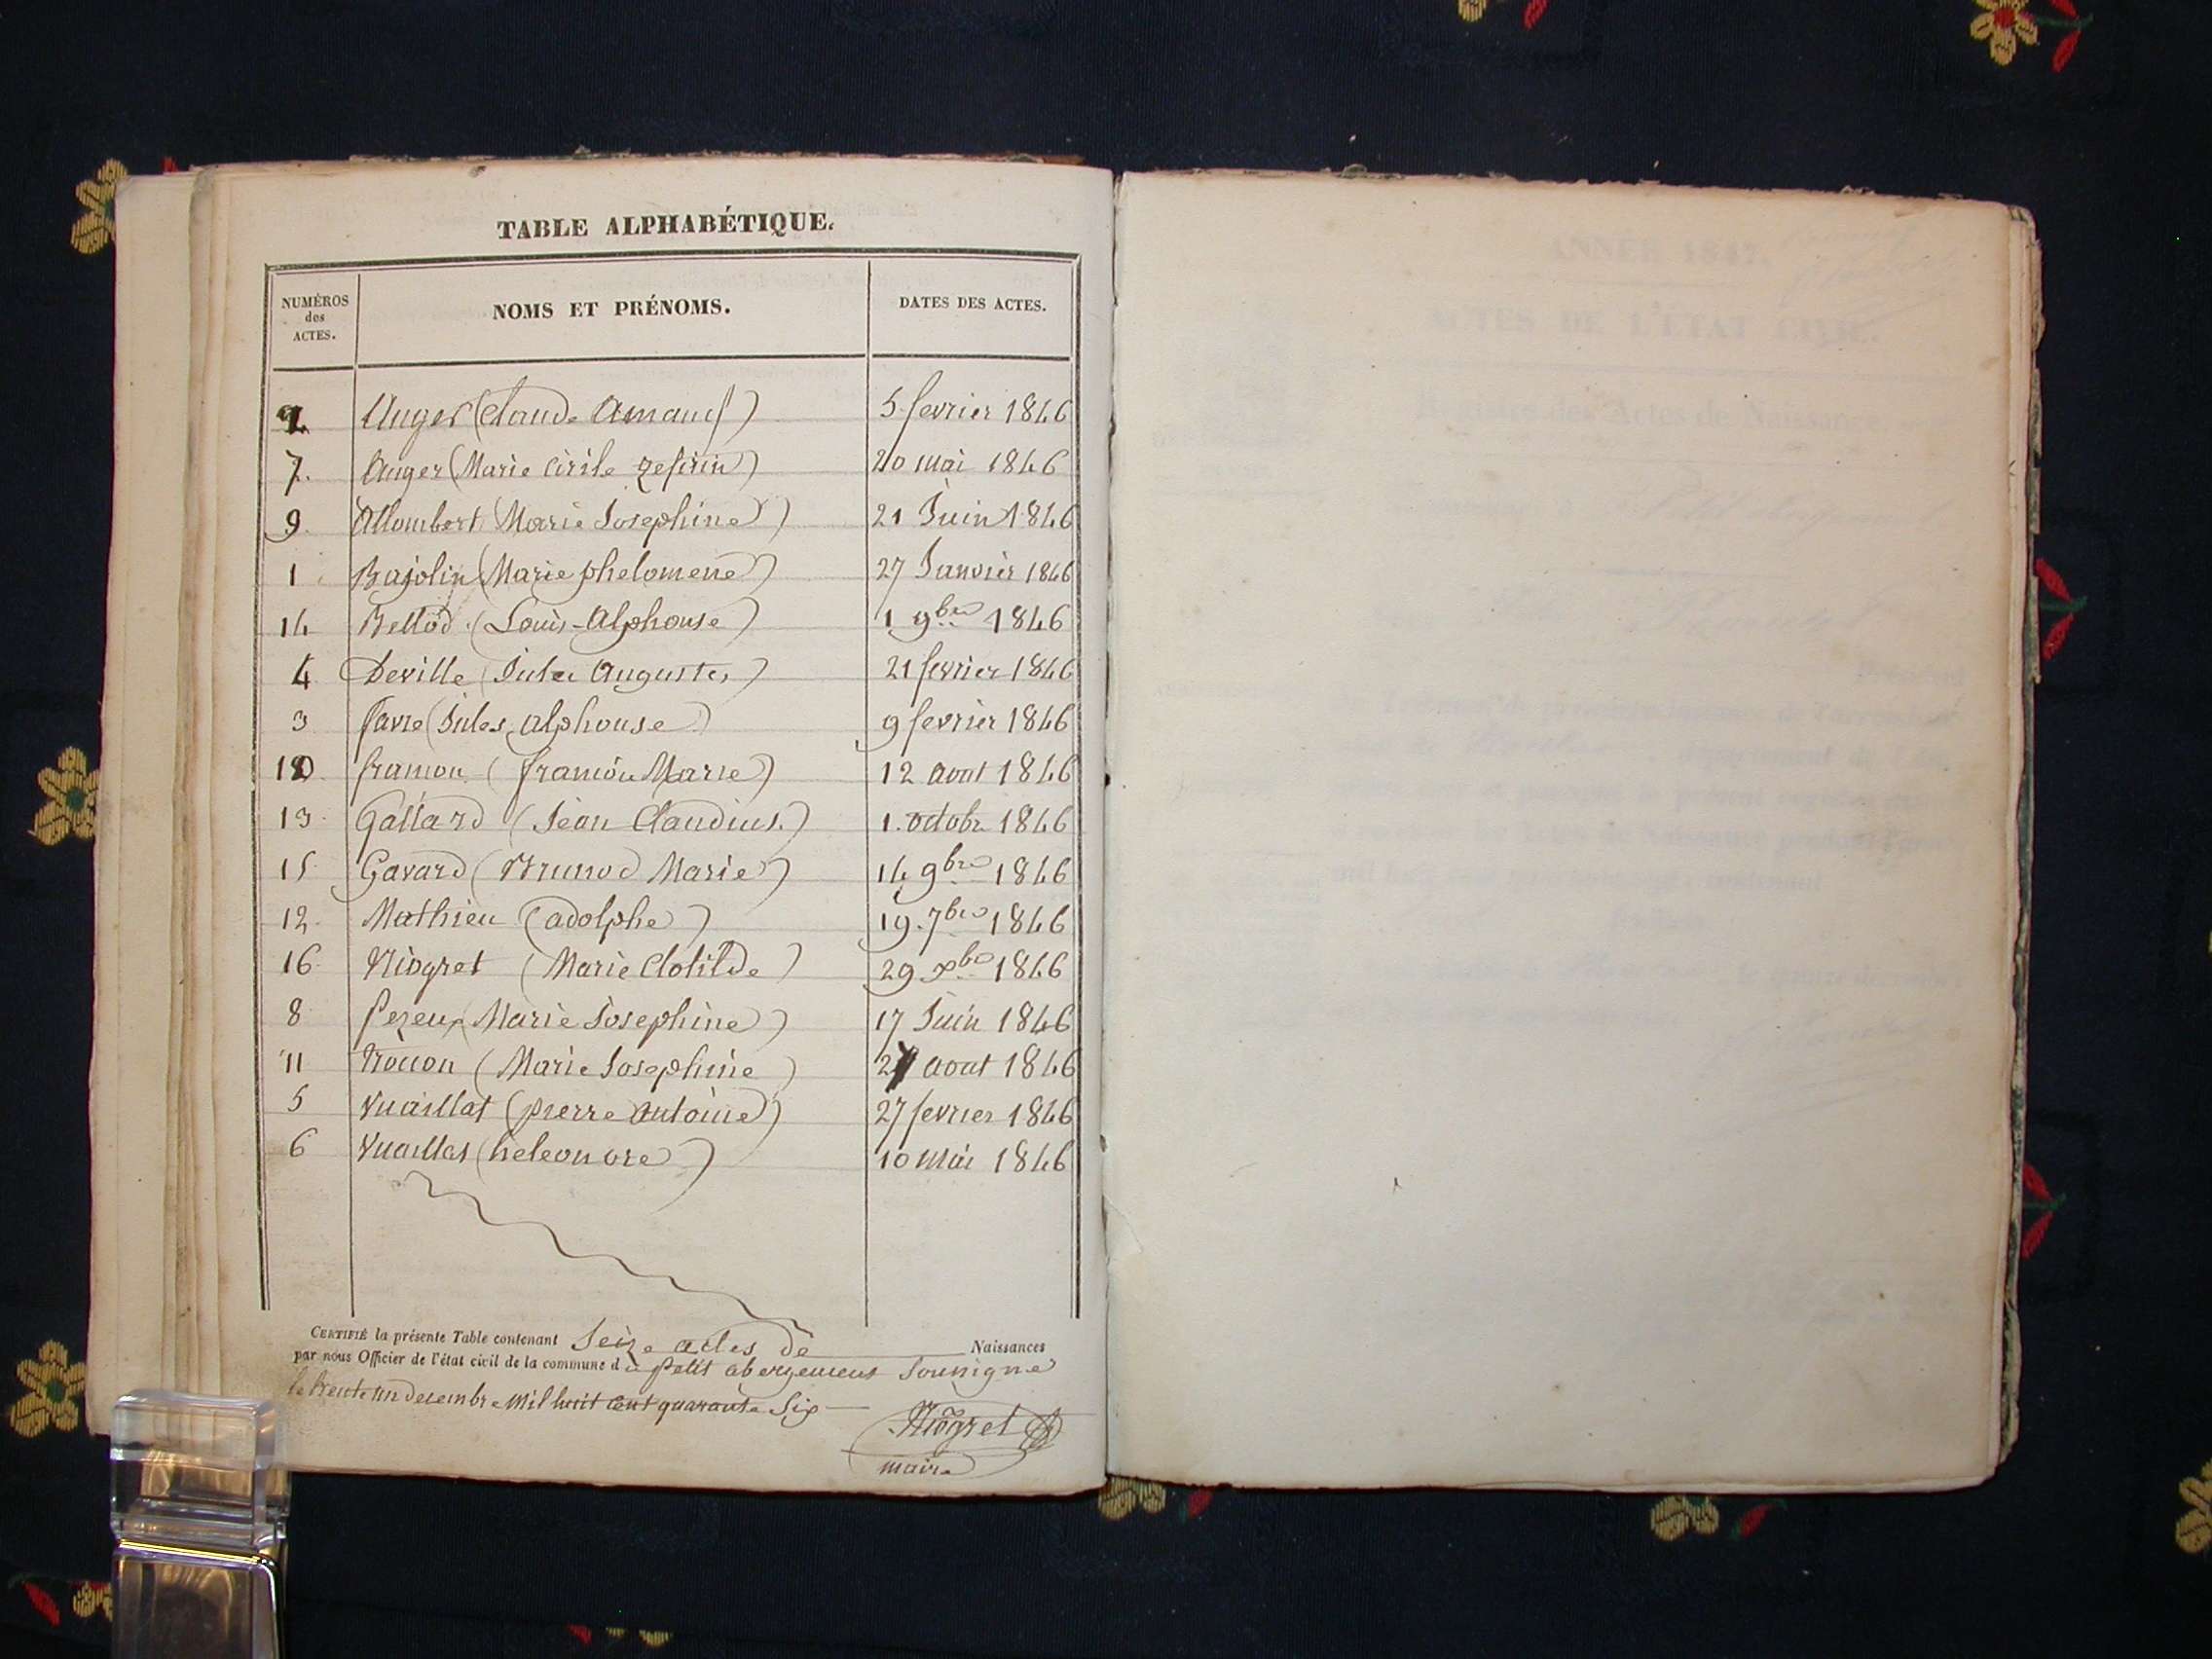 TABLE ALPHABÉTIQUE.
NUMÉROS des ACTES. NOMS ET PRÉNOMS. DATES DES ACTES.
2 Auger (Claude Amand) 5 fevrier 1846
7. Auger (Marie Cirile zefirin) 20 mai 1846
9. Allombert (Marie Josephine) 21 Juin 1846
1 Bajolin (Marie phelomene) 27 Janvier 1846
14 Bellod (Louis-Alphonse) 1 9bre 1846
4 Deville (Jules Auguste) 21 fevrier 1846
3 favre (Jules alphonse) 9 fevrier 1846
10 framon (framon Marie) 12 aout 1846
13 Gallard (Jean Claudius) 1. octobre 1846
15 Gavard (Brunod Marie) 14 9bre 1846
12. Mathieu (adolphe) 19. 7bre 1846
16 Niogret (Marie Clotilde) 29 xbre 1846
8 Marie Josephine) 17 Juin 1846
11 (Marie Josephine) aout 1846
5 Vuaillat (pierre antoine) 27 fevrier 1846
6 Vuaillat (heleonore) 10 Mai 1846
CERTIFIÉ la présente Table contenant Seize actes de Naissances
par nous Officier de l'état civil de la commune du petit abergement Soussigne
le trente un decembre mil huit cent quarante Six
Niogret
maire
ANNÉE 1847.
ACTES DE L'ÉTAT CIVIL.
Registre des Actes de Naissance